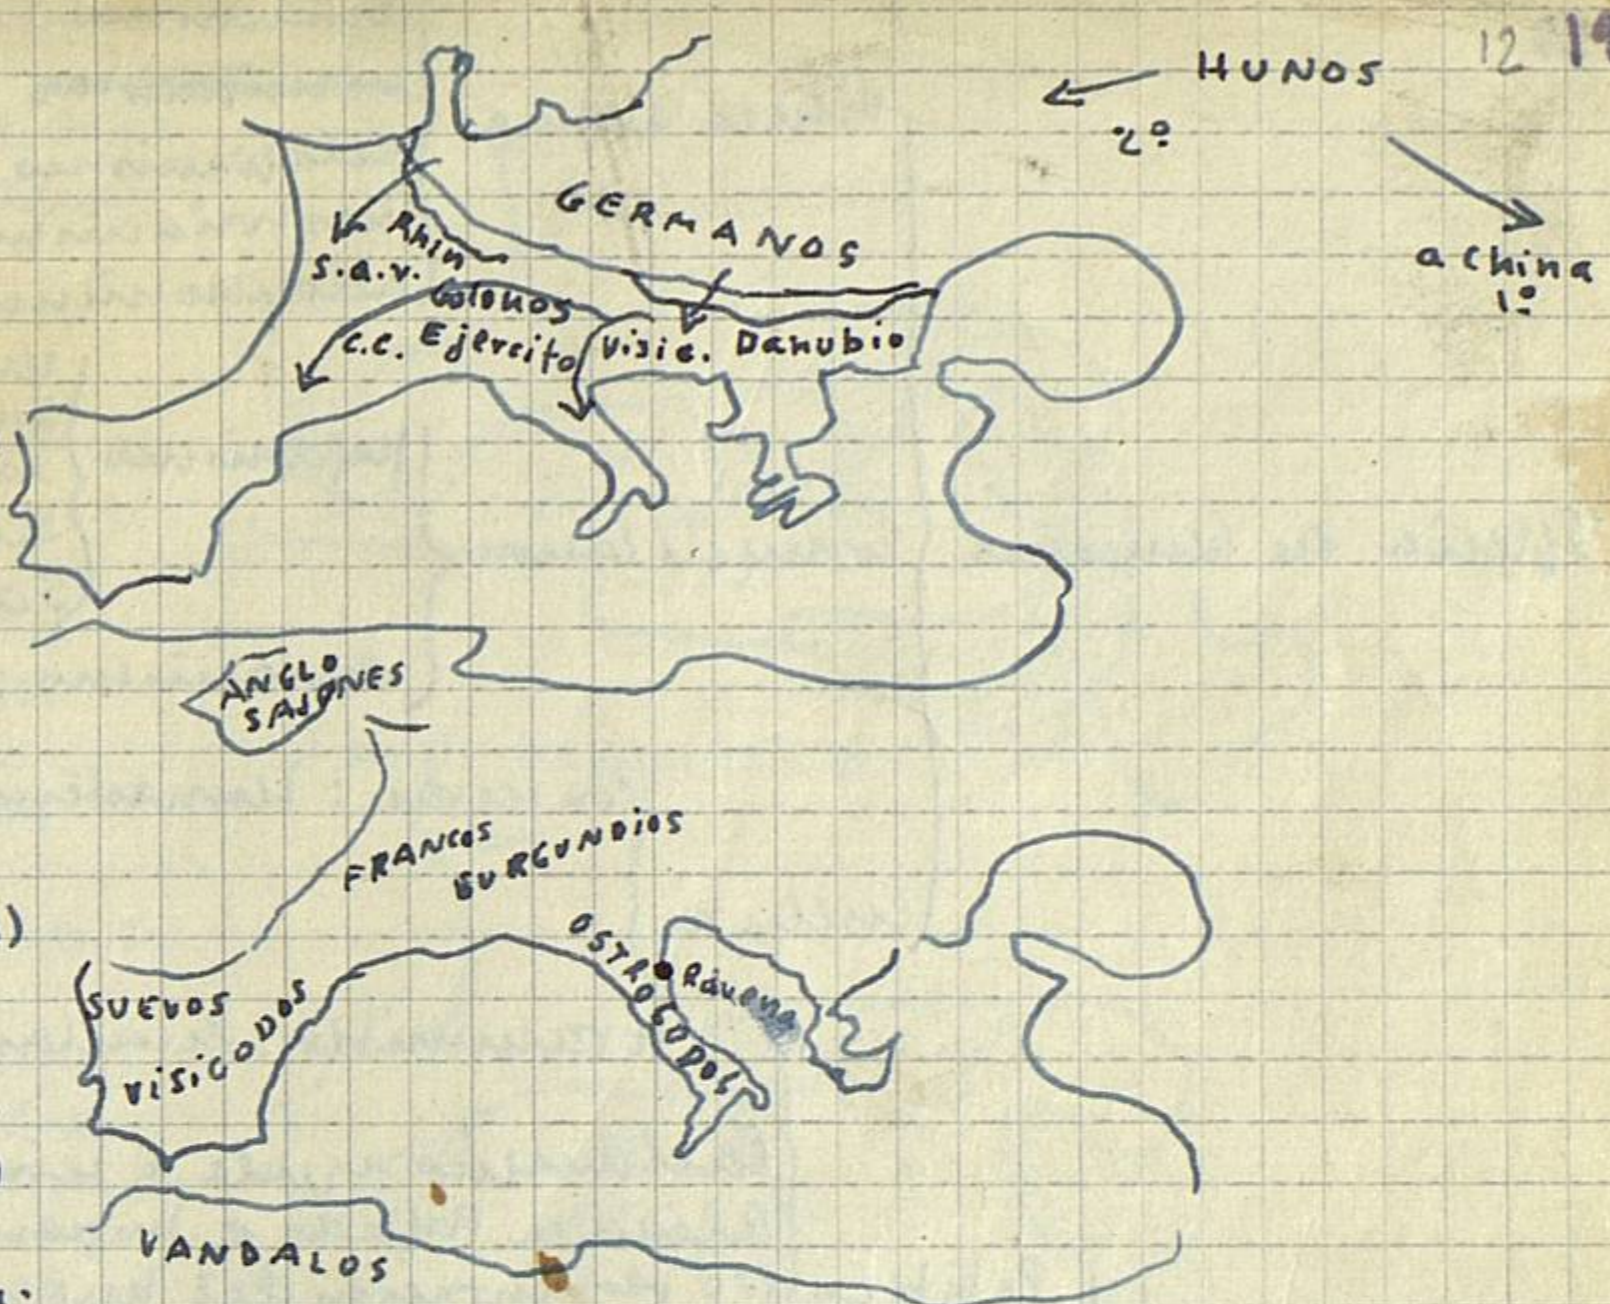 12
HUNOS
2º
a China
1º
GERMANOS
Rhin
s.a.v.
Colonos
c.c. Ejercito
Visig. Danubio
ANGLO
SAJONES
FRANCOS
BURGUNDIOS
OSTROGODOS
Rávena
SUEVOS
VISIGODOS
VANDALOS